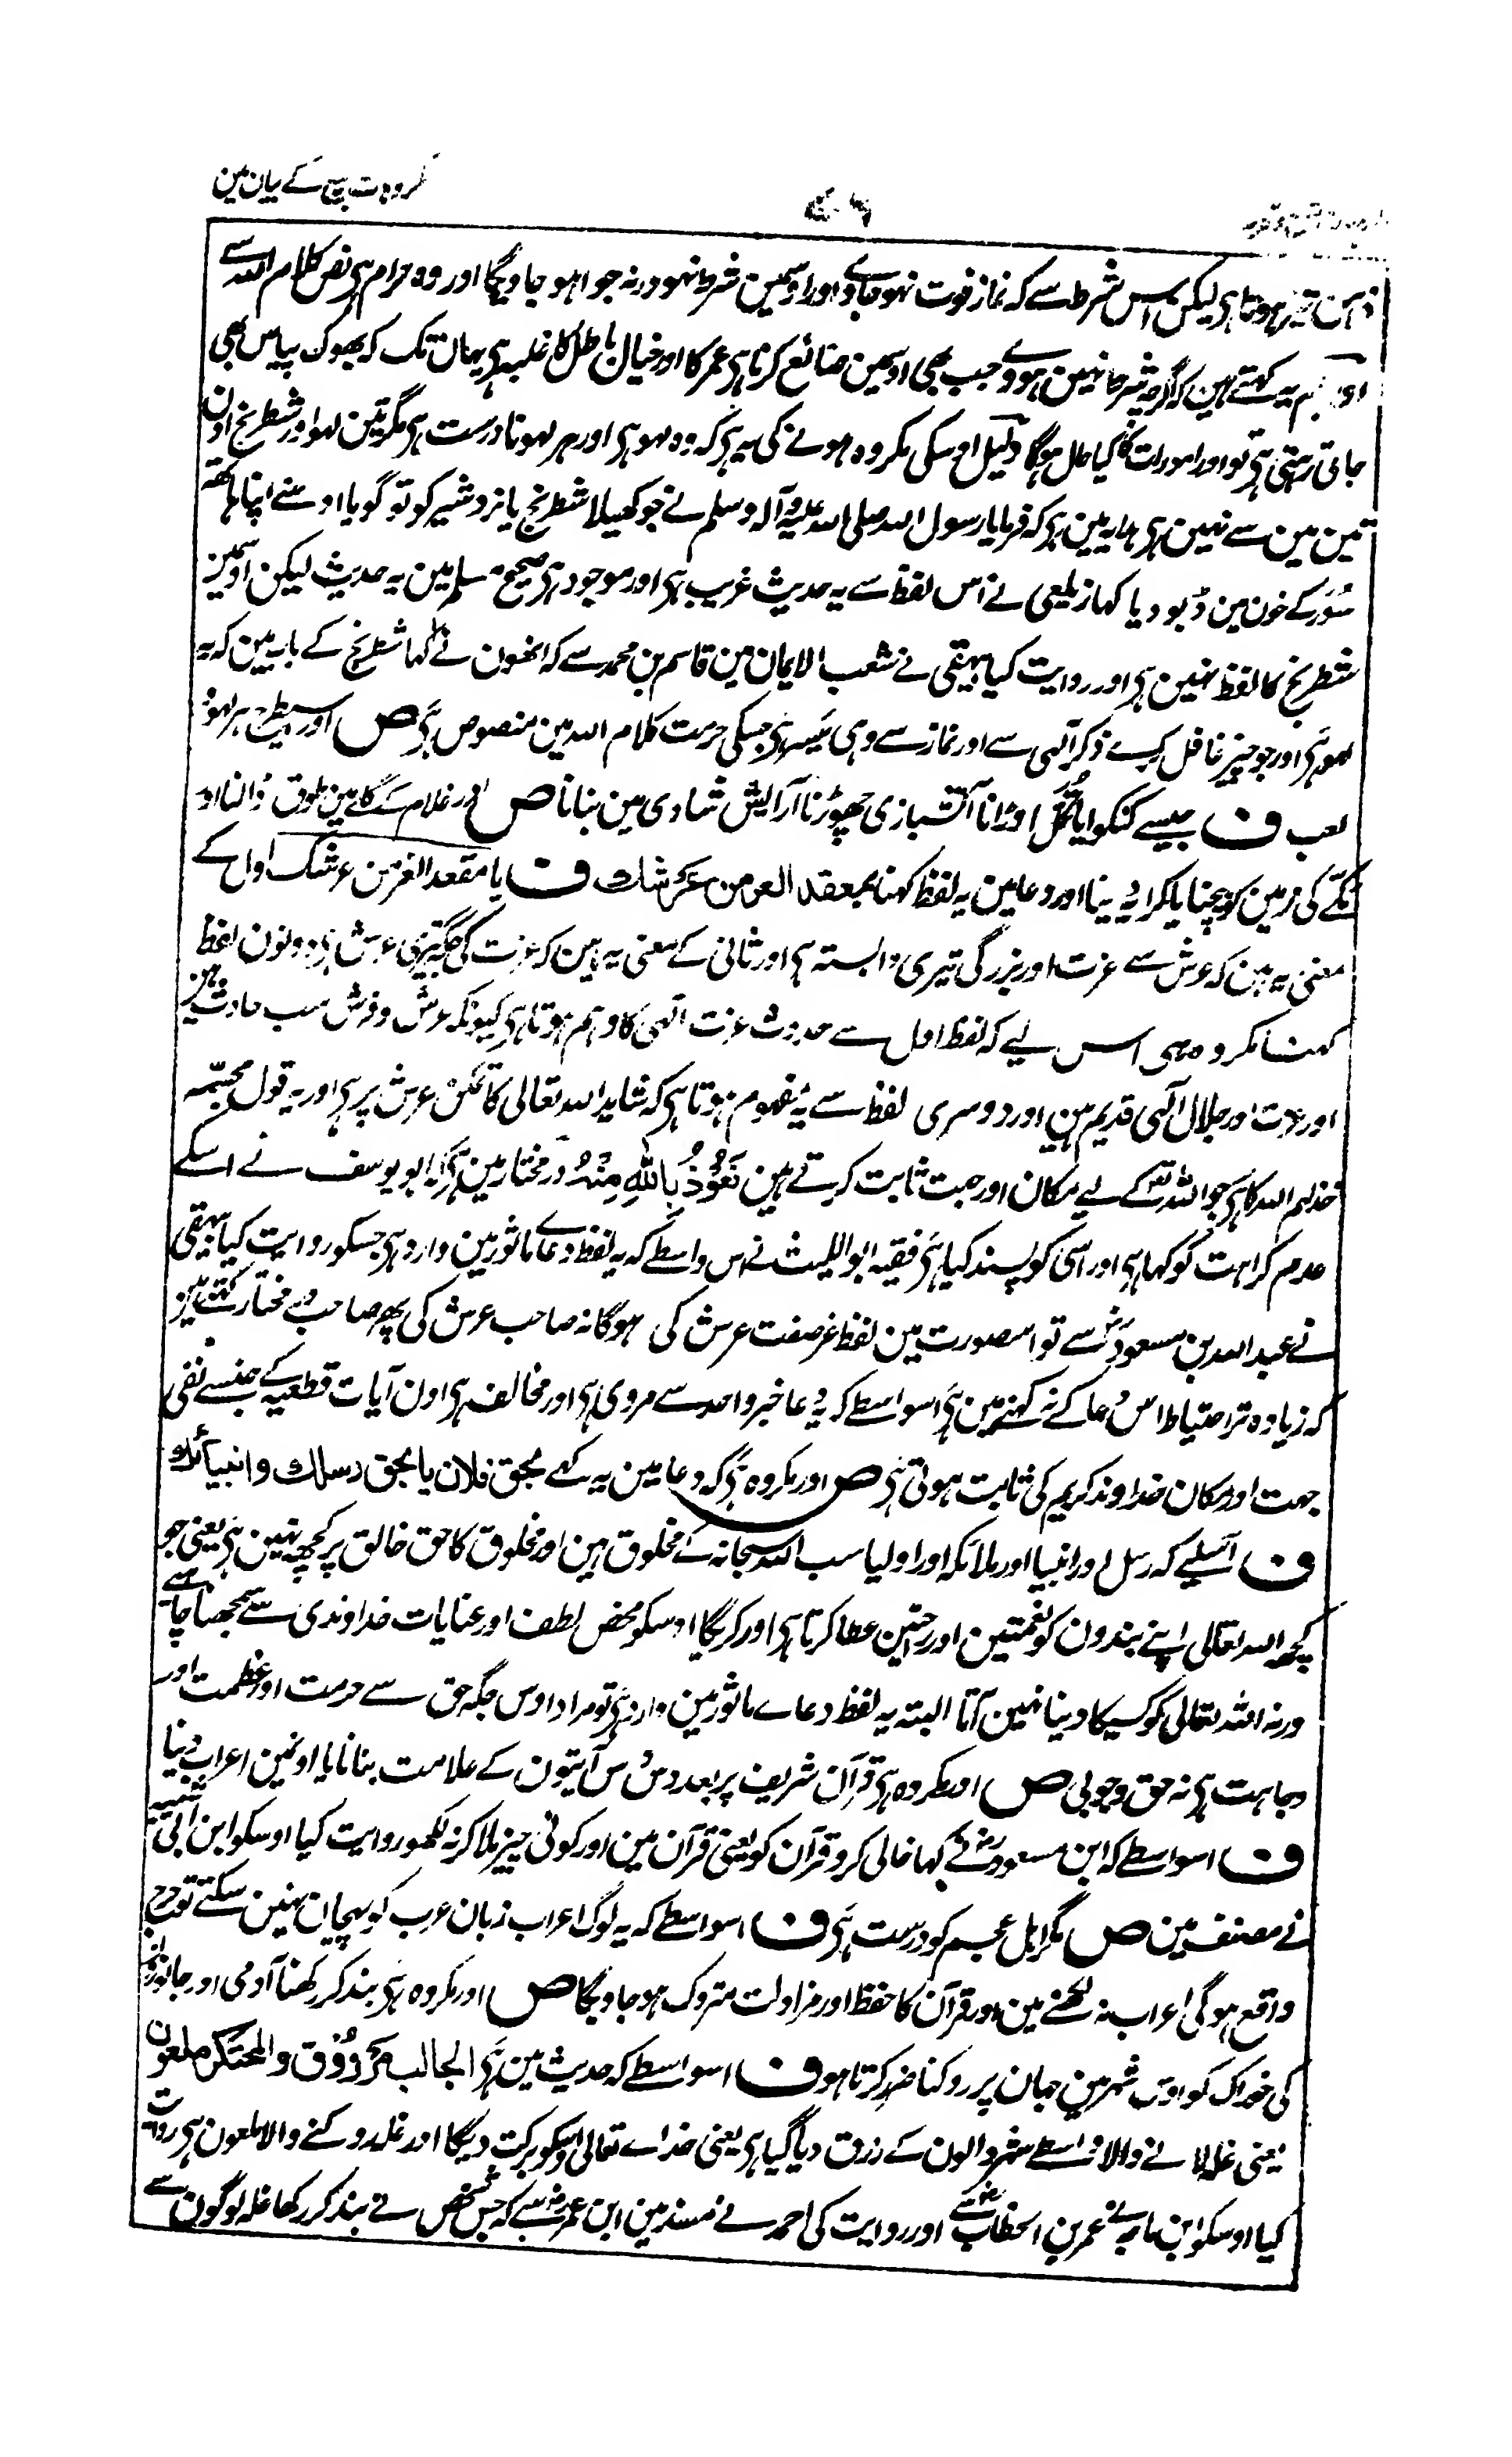 مکروہات بیع کے بیان مین
ذہن تیز ہوتا ہی لیکن اس شرط سے کہ نماز فوت نہو جاوے اور اوسمین شرط نہو ورنہ جوا ہو جاویگا اور وہ حرام ہی نص کلام اللہ سے
اور ہم یہ کہتے ہین کہ اگرچہ شرط نہین ہووے جب بھی اوسمین ضائع کرنا ہی عمر کا اور خیال باطل کا غلبہ ہی یہان تک کہ بھوک پیاس بھی
جاتی رہتی ہی تو اور امورات کا کیا حال ہوگا دلیل اوسکی مکروہ ہونے کی یہ ہی کہ وہ لہو ہی اور ہر لہو نادرست ہی مگر تین لہو اور شطرنج اون
تین مین سے نہین ہی ہدایہ مین ہی کہ فرمایا رسول اللہ صلی اللہ علیہ وآلہ وسلم نے جو کھیلا شطرنج یا نردشیر کو تو گویا اوسنے اپنا ہاتھ
سُوَر کے خون مین ڈبو دیا کہا زیلعی نے اس لفظ سے یہ حدیث غریب ہی اور موجود ہی صحیح مسلم مین یہ حدیث لیکن اوسمین
شطرنج کا لفظ نہین ہی اور روایت کیا بیہقی نے شعب الایمان مین قاسم بن محمد سے کہ انھون نے کہا شطرنج کے باب مین کہ یہ
لہو ہی اور جو چیز غافل کرے ذکر آلہی سے اور نماز سے وہی میسر ہی جسکی حرمت کلام اللہ مین منصوص ہی ص اور اسیطرح ہر لہو
لعب ف جیسے کنکوا یا تکل اوڑانا آتشبازی چھوڑنا آرایش شادی مین بنانا ص اور غلام کے گلے مین طوق ڈالنا اور
مکے کی زمین کو بیچنا یا کرایہ دینا اور دعا مین یہ لفظ کہنا بمعقد العز من عرشک ف یا مقعد العز من عرشک اول کے
معنی یہ ہین کہ عرش سے عزت اور بزرگی تیری وابستہ ہی اور ثانی کے معنی یہ ہین کہ عزت کی جگہ تیری عرش ہی دونون لفظ
کہنا مکروہ ہی اس لیے کہ لفظ اول سے حدوث عزت الٰہی کا وہم ہوتا ہی کیونکہ عرش و فرش سب حادث ہین
اور عزت اور جلال الٰہی قدیم ہین اور دوسری لفظ سے یہ مفہوم ہوتا ہی کہ شاید اللہ تعالی کا تمکن عرش پر ہی اور یہ قول مجسمہ
خذلہم اللہ کا ہی جو اللہ تعالی کے لیے مکان اور جہت ثابت کرتے ہین نَعُوْذُ بِاللّٰهِ مِنْهُ در مختار مین ہی کہ ابو یوسف نے اسکے
عدم کراہت کو کہا ہی اور اسی کو پسند کیا ہی فقیہ ابو اللیث نے اس واسطے کہ یہ لفظ دعاے ماثور مین وارد ہی جسکو روایت کیا بیہقی
نے عبد اللہ بن مسعود رض سے تو اس صورت مین لفظ عز صفت عرش کی ہوگا نہ صاحب عرش کی پھر صاحب در مختار کہتے ہین
کہ زیادہ تر احتیاط اس دعا کے نہ کہنے مین ہی اسواسطے کہ یہ دعا خبر واحد سے مروی ہی اور مخالف ہی اون آیات قطعیہ کے جنسے نفی
جہت اور مکان خداوند کریم کی ثابت ہوتی ہی ص اور مکروہ ہی کہ دعا مین یہ کہے بحق فلان یا بحق رسلک وانبیائک
ف اسلیے کہ رسل اور انبیا اور ملائکہ اور اولیا سب اللہ سبحانہ کے مخلوق ہین اور مخلوق کا حق خالق پر کچھ نہین ہی یعنی جو
کچھ اللہ تعالی اپنے بندون کو نعمتین اور رحمتین عطا کرتا ہی اور کریگا اوسکو محض لطف اور عنایات خداوندی سے سمجھنا چاہیے
ورنہ اللہ تعالی کو کسیکا دینا نہین آتا البتہ یہ لفظ دعاے ماثور مین وارد ہی تو مراد اوس جگہ حق سے حرمت اور عظمت اور
وجاہت ہی نہ حق وجوبی ص اور مکروہ ہی قرآن شریف پر بعد دس دس آیتون کے علامت بنانا یا اونمین اعراب دینا
ف اسواسطے کہ ابن مسعود رض نے کہا خالی کرو قرآن کو یعنی قرآن مین اور کوئی چیز ملا کر نہ لکھو روایت کیا اوسکو ابن ابی شیبہ
نے مصنف مین ص مگر اہل عجم کو درست ہی ف اسواسطے کہ یہ لوگ اعراب زبان عرب کو پہچان نہین سکتے تو حرج
واقع ہوگی اعراب نہ لکھنے مین اور قرآن کا حفظ اور مزاولت متروک ہو جاویگا ص اور مکروہ ہی بند کر رکھنا آدمی اور جانورون
کی خوراک کو اوس شہر مین جہان پر روکنا ضرر کرتا ہو ف اسواسطے کہ حدیث مین ہی الجالب مرزوق والمحتکر ملعون
یعنی غلہ لانے والا واسطے شہر والون کے رزق دیا گیا ہی یعنی خداے تعالی اوسکو برکت دیگا اور غلہ روکنے والا ملعون ہی روایت
کیا اوسکو ابن ماجہ نے عمر بن الخطاب رض سے اور روایت کی احمد نے مسند مین ابن عمر رض سے کہ جس شخص نے بند کر رکھا غلہ لوگون سے